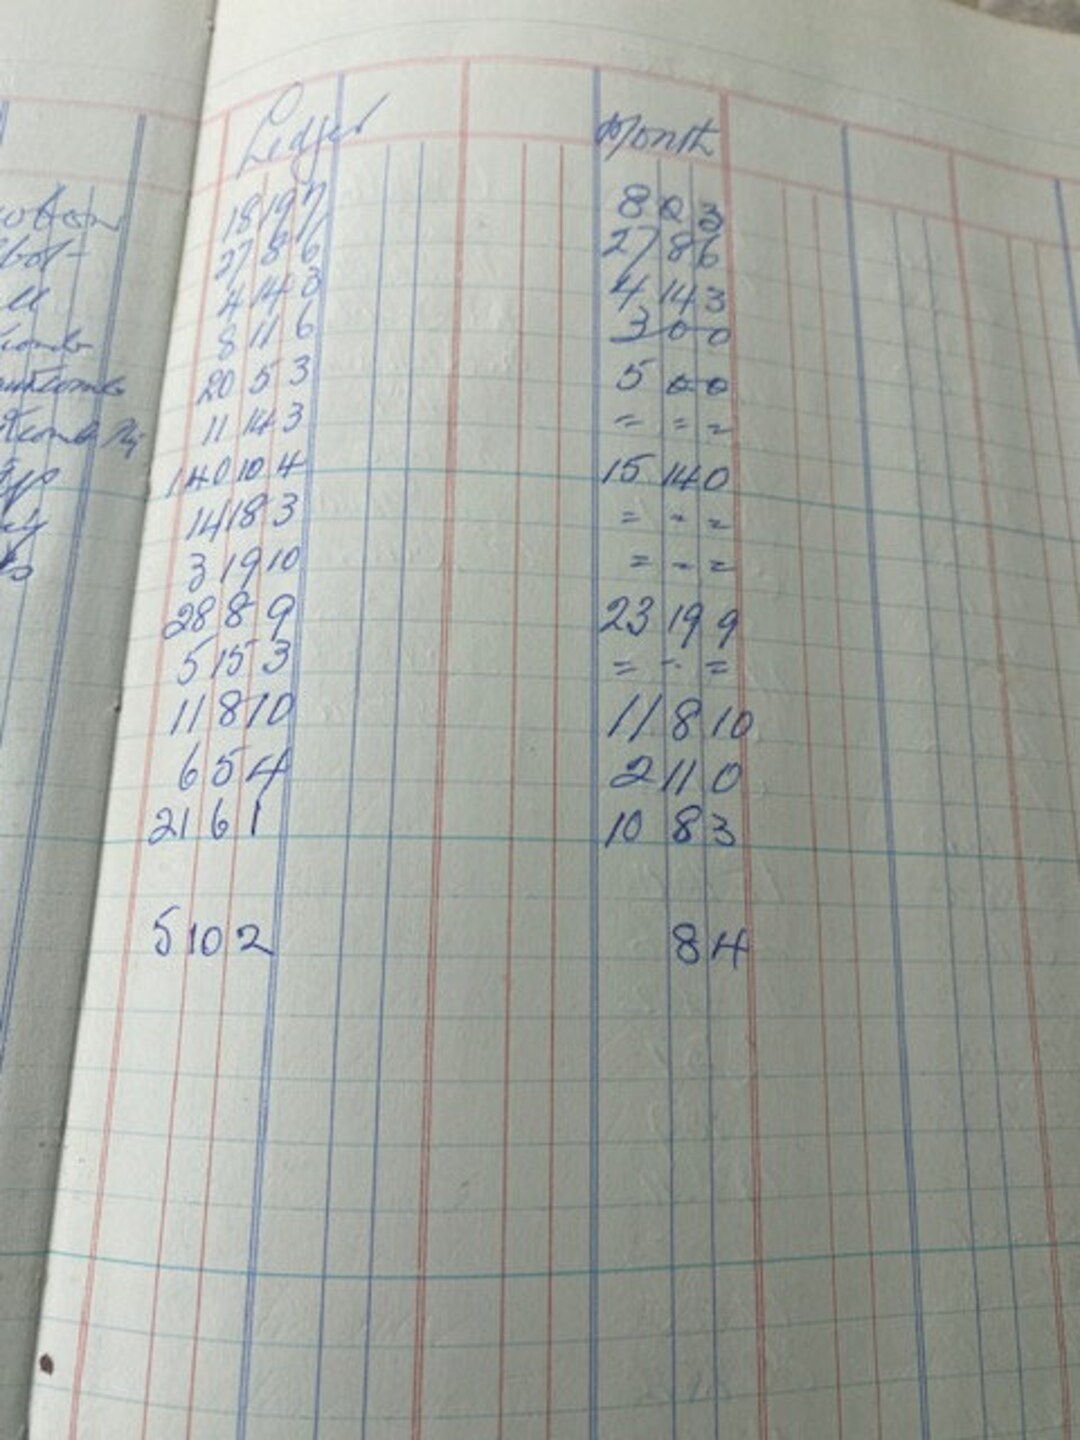 Ledger Month
18 19 7 8 0 3
27 8 6 27 8 6
4 14 3 4 14 3
8 11 6 3 0 0
20 5 3 5 0 0
11 14 3 = = =
140 10 4 15 14 0
14 18 3 = = =
3 19 10 = - =
28 8 9 23 19 9
5 15 3 = - =
11 8 10 11 8 10
6 5 4 2 11 0
21 6 1 10 8 3
5 10 2 8 4